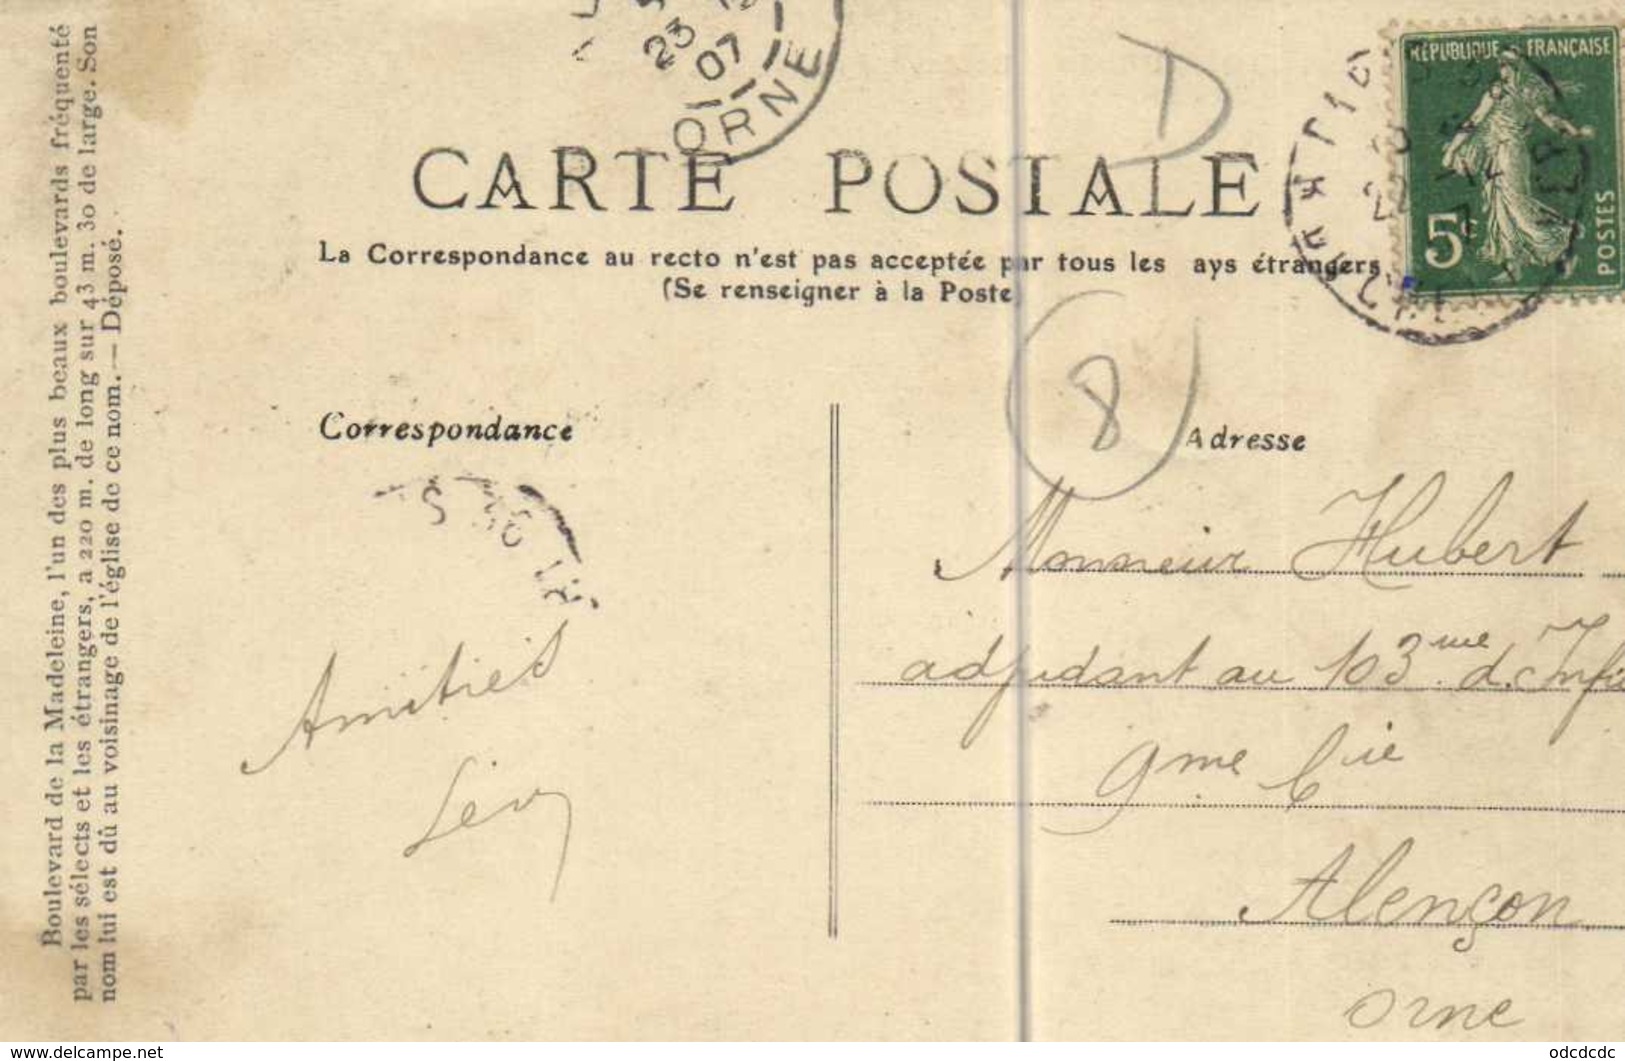 Boulevard de la Madeleine, l'un des plus beaux boulevards fréquenté
par les sélects et les étrangers, a 220 m. de long sur 43 m. 30 de large. Son
nom lui est dû au voisinage de l'église de ce nom. — Déposé.
23
07
ORNE
D
RÉPUBLIQUE FRANÇAISE
5c
POSTES
CARTE POSTALE
La Correspondance au recto n'est pas acceptée par tous les ays étrangers
(Se renseigner à la Poste
8
Correspondance
Amitiés
Lévy
Adresse
Monsieur Hubert
adjudant au 103me d'Infie
9me Cie
Alençon
Orne
odcdcdc